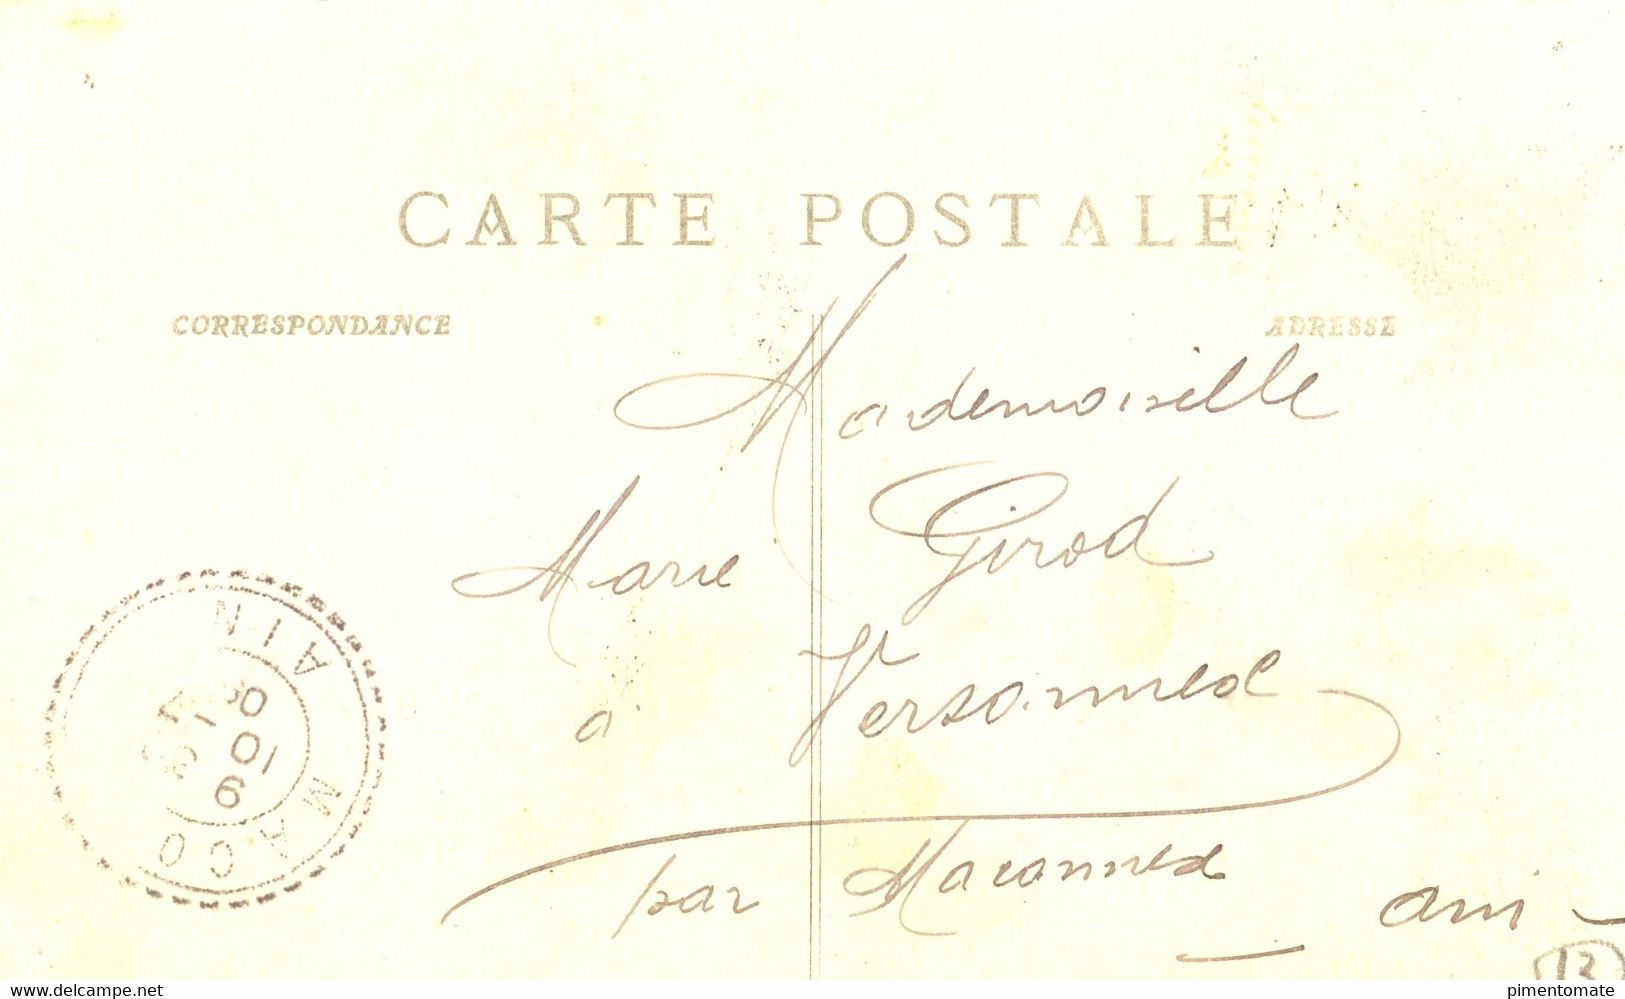 CARTE POSTALE
CORRESPONDANCE
ADRESSE
Mademoiselle
Marie Girod
à Versonnex
par Maconnex
Ain
AIN
MACO
9
13
www.delcampe.net
pimentomate